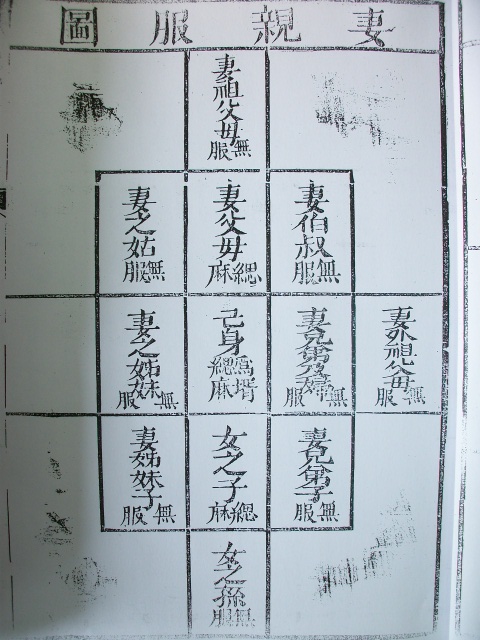 妻親服圖
妻祖父母無服
妻伯叔無服
妻父母緦麻
妻之姑無服
妻外祖父母無服
妻兄弟及婦無服
己身爲壻緦麻
妻之姊妹無服
妻兄弟子無服
女之子緦麻
妻姊妹子無服
女之孫無服